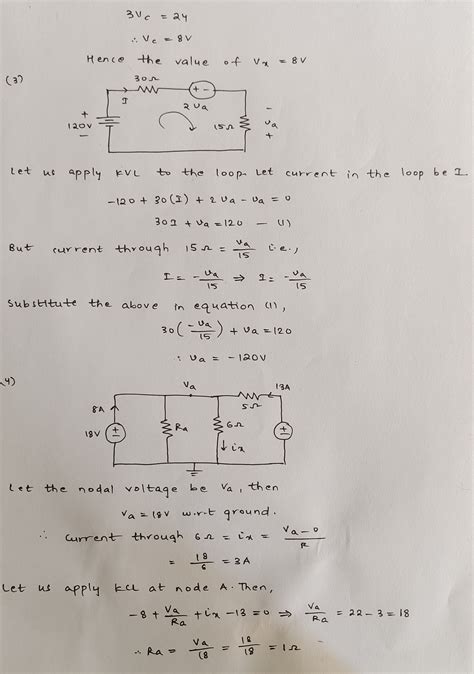 3Vc = 24
∴ Vc = 8V
Hence the value of Vx = 8V
(3)
30Ω
+ -
I
2Va
+
120V
-
15Ω
-
Va
+
Let us apply KVL to the loop. Let current in the loop be I.
-120 + 30(I) + 2Va - Va = 0
30I + Va = 120 — (1)
But current through 15Ω = Va/15 i.e.,
I = -Va/15 ⇒ I = -Va/15
Substitute the above in equation (1),
30(-Va/15) + Va = 120
∴ Va = -120V
4)
Va
13A
8A
5Ω
18V
±
Ra
6Ω
ix
±
Let the nodal voltage be Va, then
Va = 18V w.r.t ground.
∴ Current through 6Ω = ix = Va-0/R
= 18/6 = 3A
Let us apply KCL at node A. Then,
-8 + Va/Ra + ix - 13 = 0 ⇒ Va/Ra = 22 - 3 = 18
∴ Ra = Va/18 = 18/18 = 1Ω